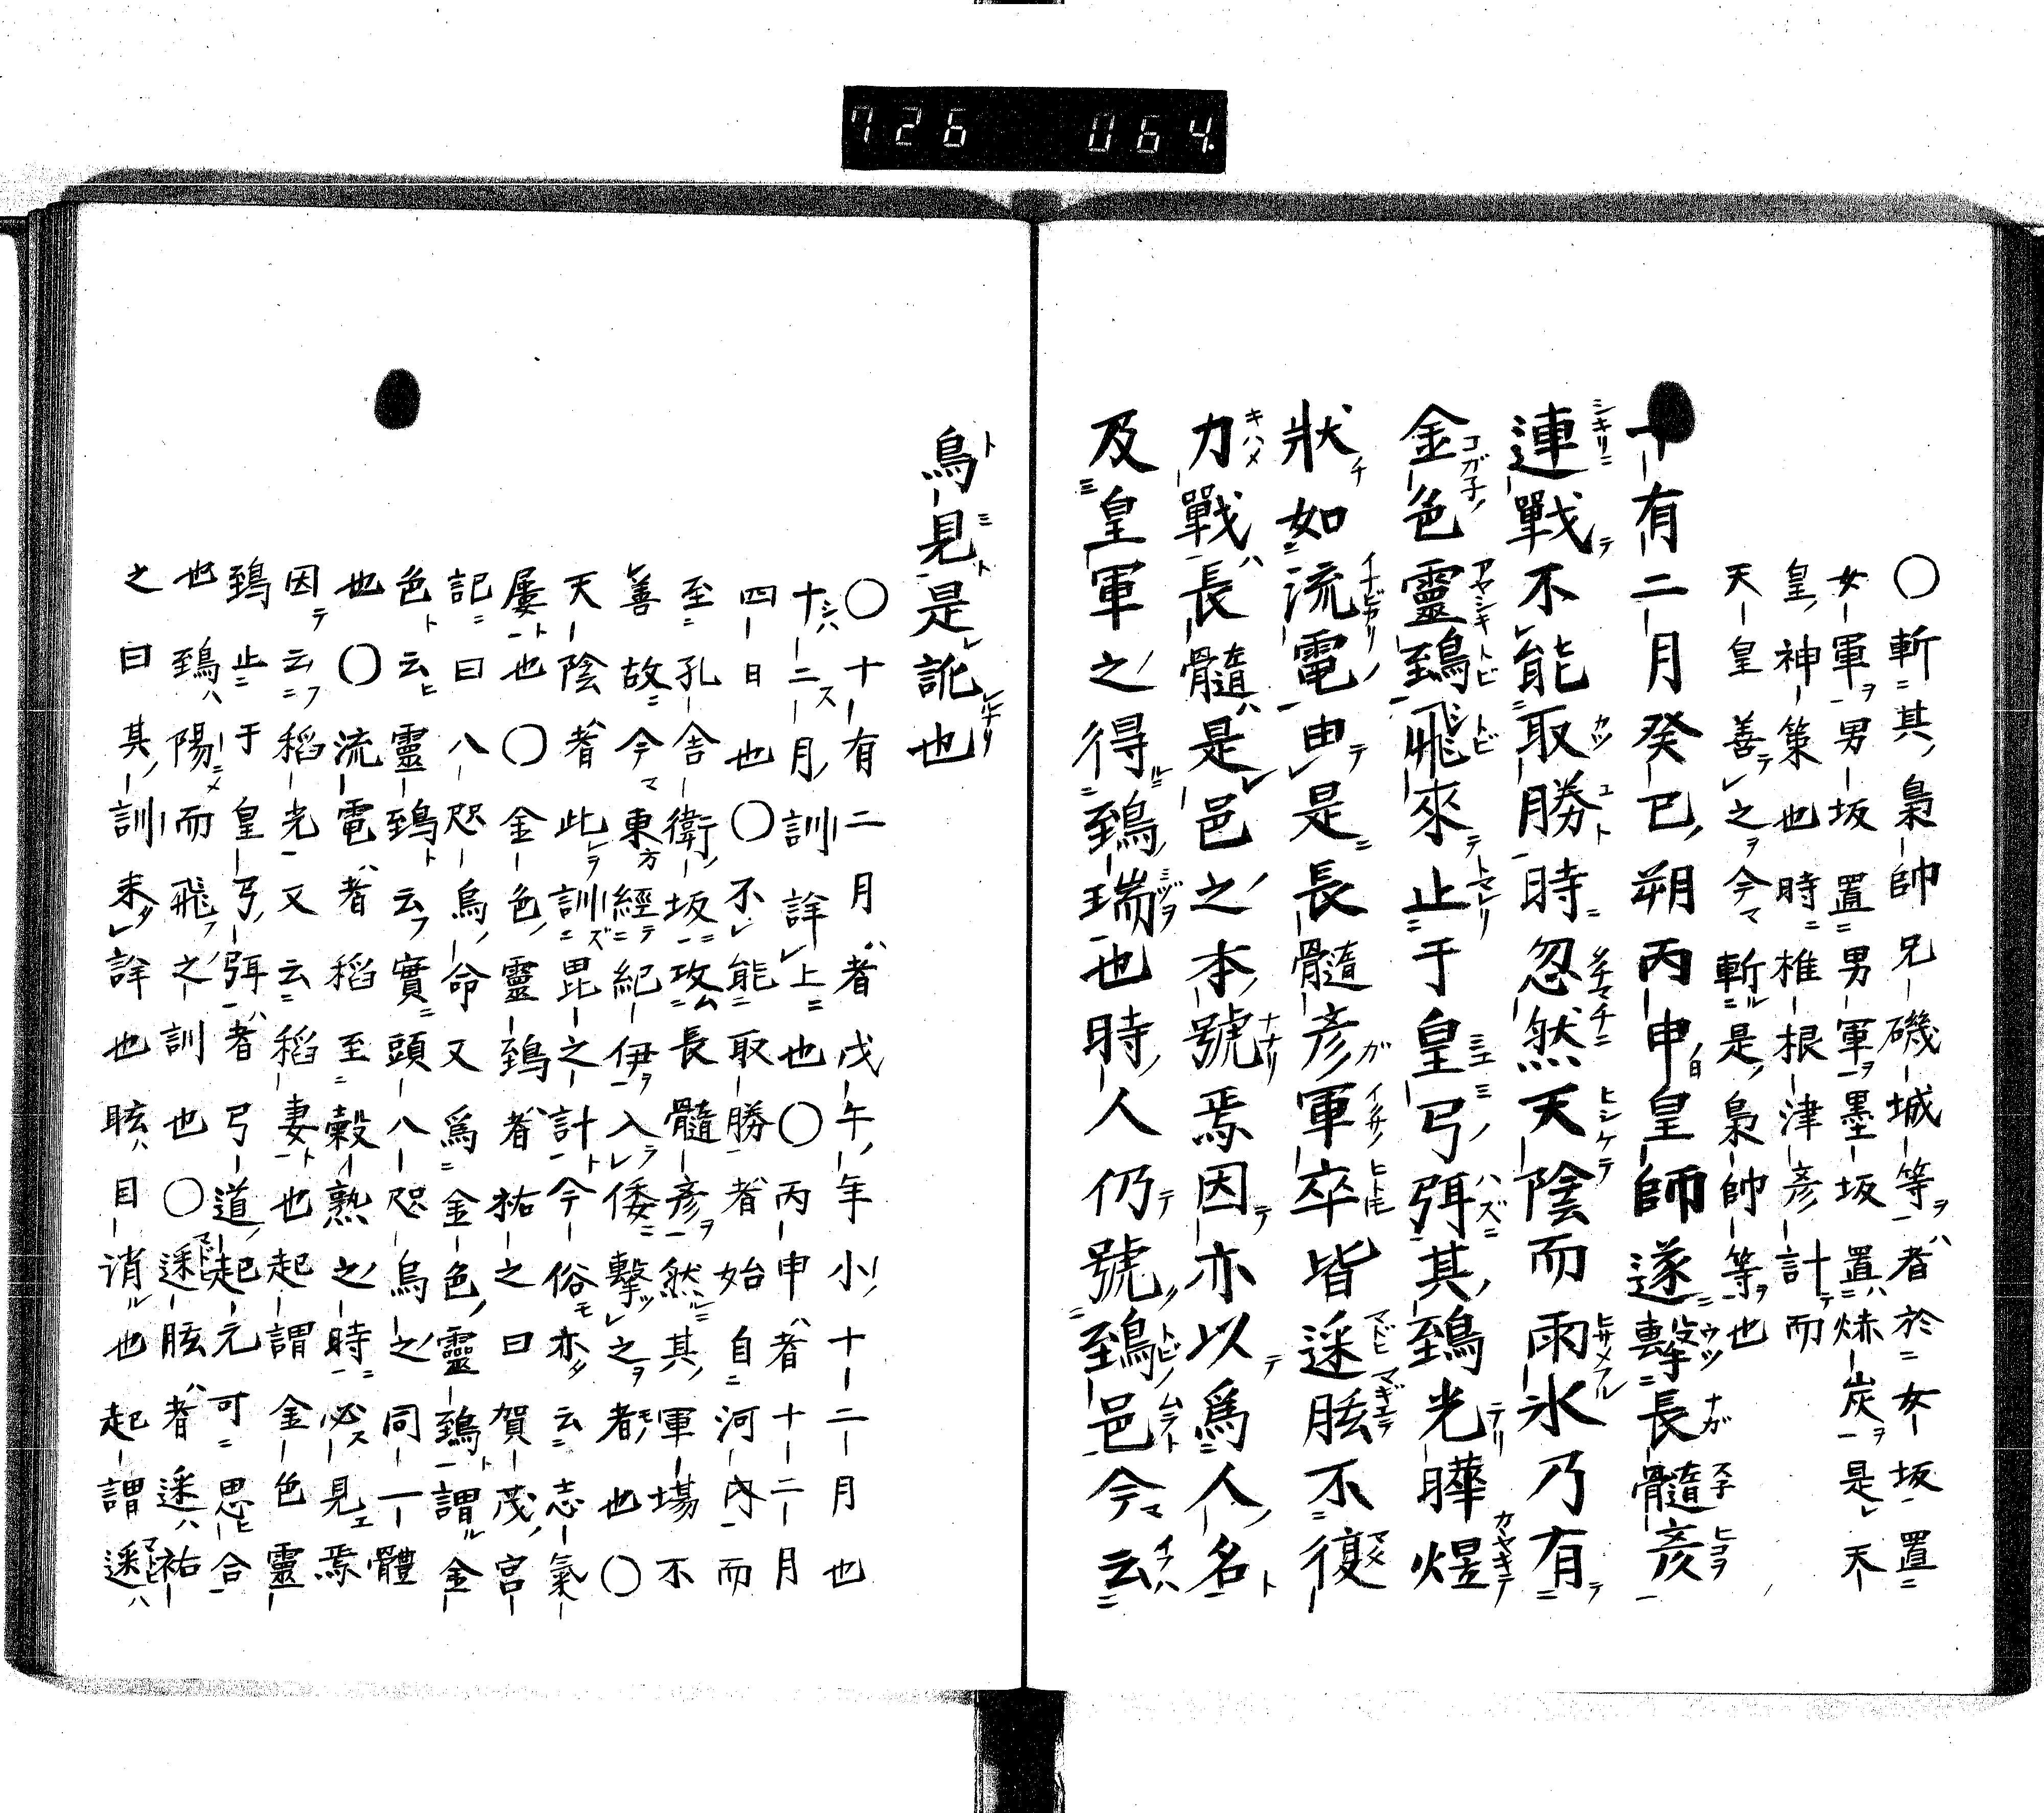 726 064.
〇斬其梟帥兄磯城等者於女坂置
女軍男坂置男軍墨坂置焃炭是天
皇神策也時椎根津彦計而
天皇善之今斬是梟帥等也
十有二月癸巳朔丙申皇師遂擊長髓彦
連戰不能取勝時忽然天陰而雨氷乃有
金色靈鵄飛來止于皇弓弭其鵄光曄煜
狀如流電由是長髓彦軍卒皆迷眩不復
力戰長髓是邑之本號焉因亦以爲人名
及皇軍之得鵄瑞也時人仍號鵄邑今云
鳥見是訛也
〇十有二月者戊午年小十二月也
十二月訓詳上也〇丙申者十二月
四日也〇不能取勝者始自河内而
至孔舎衛坂攻長髓彦然其軍場不
善故今東方經紀伊入倭擊之者也〇
天陰者此訓毘之計今俗亦云志氣
屢也〇金色靈鵄者祐之曰賀茂宮
記曰八咫烏命又爲金色靈鵄謂金
色云靈鵄云實頭八咫烏之同一體
也〇流電者稻至穀熟之時必見焉
因云稻光又云稻妻也起謂金色靈
鵄止于皇弓弭者弓道起元可思合
也鵄陽而飛之訓也〇迷眩者迷祐
之曰其訓未詳也眩目消也起謂迷